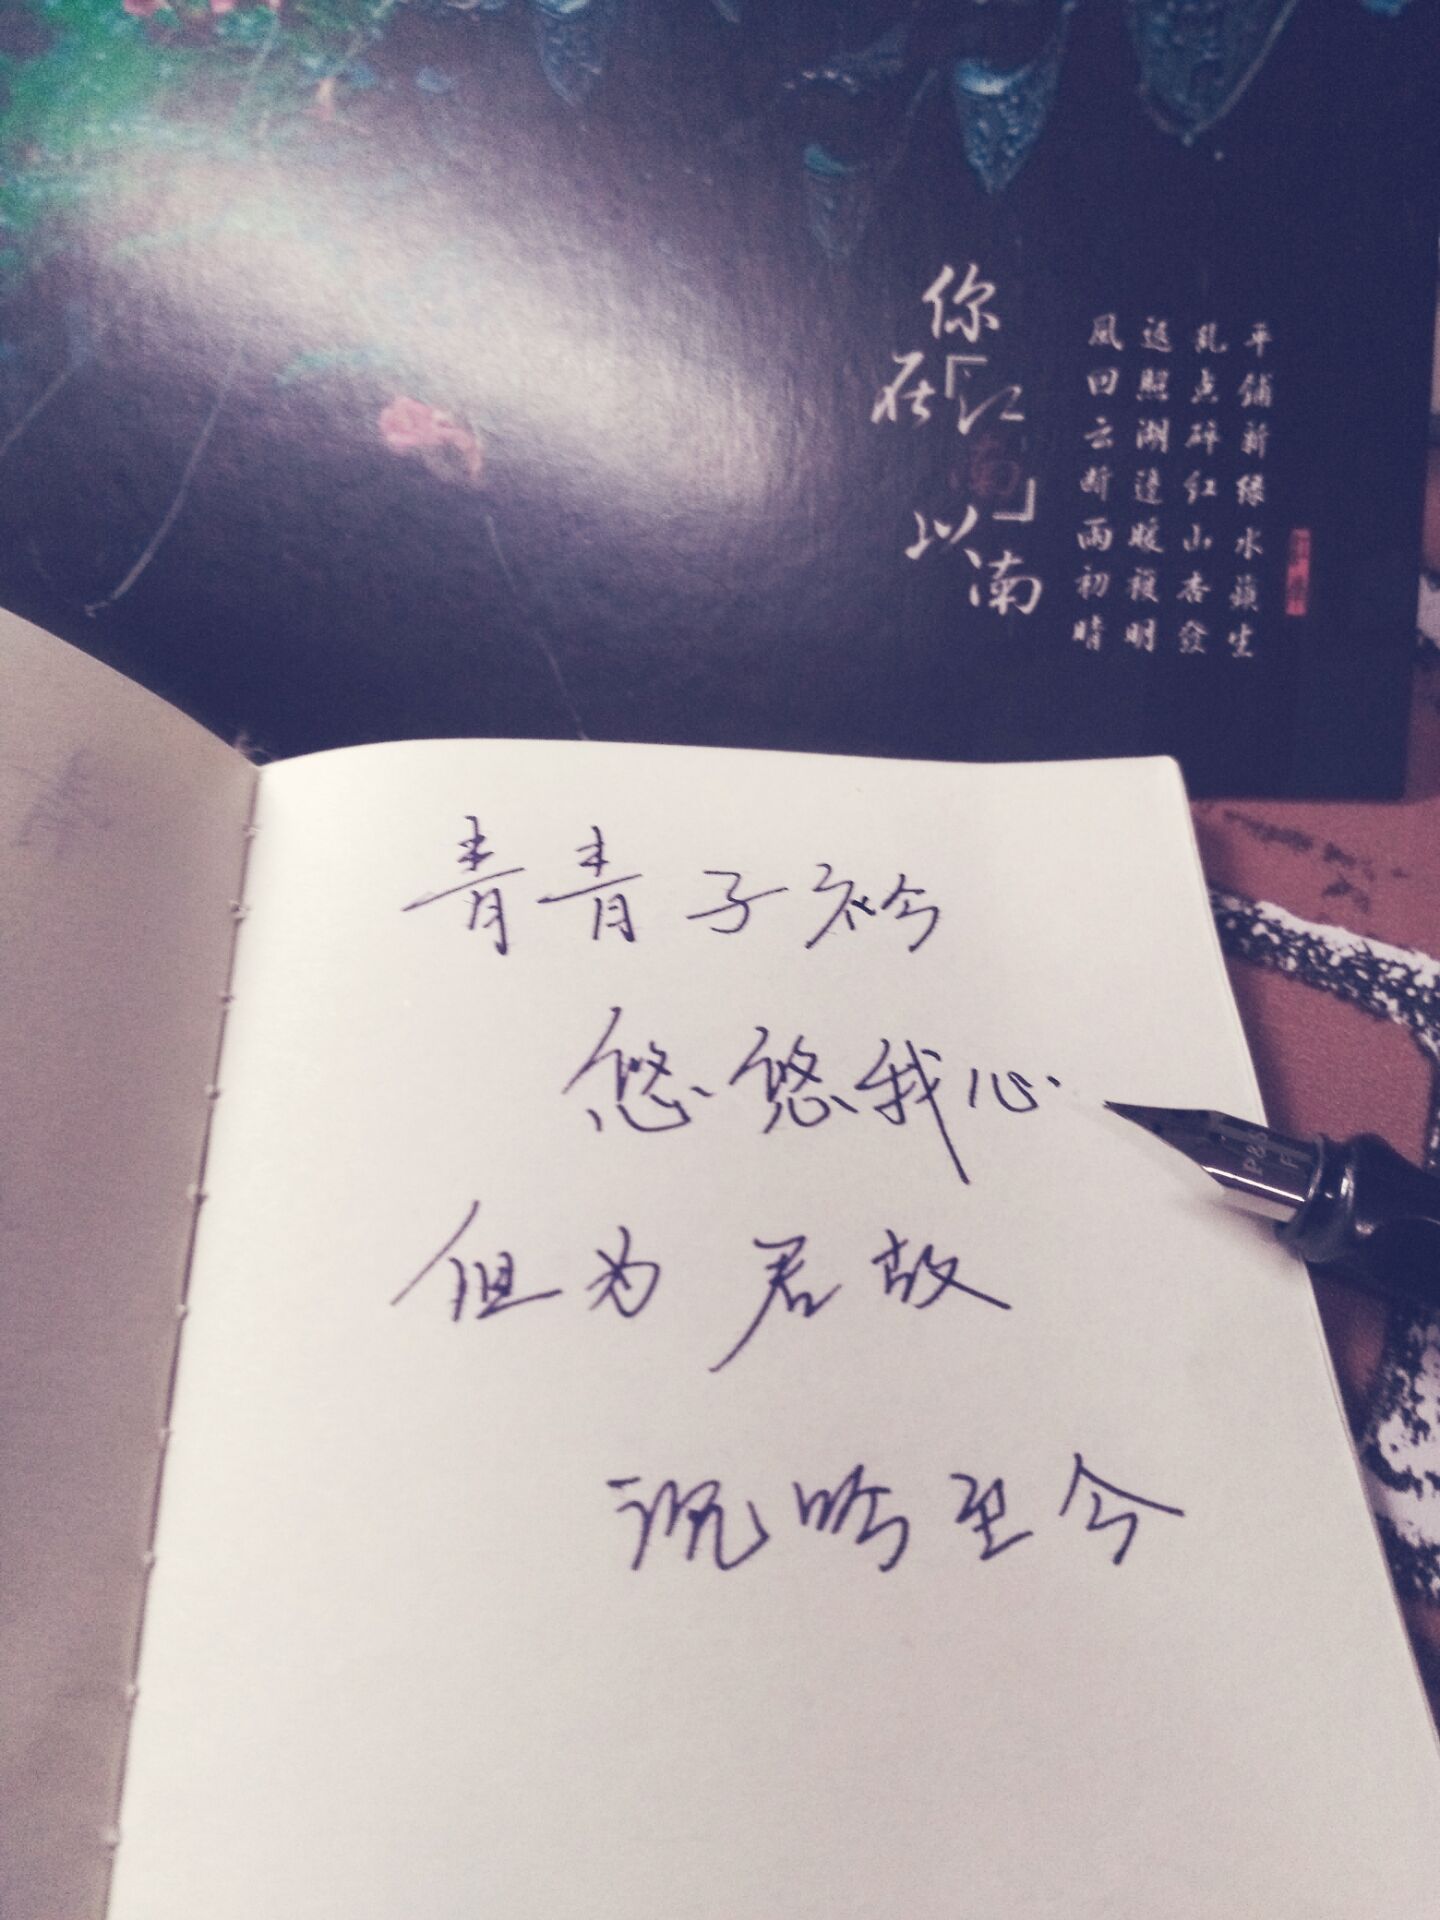 你在「江南」以南
平铺新绿水蘋生
乱点碎红山杏发
返照湖边暖複明
风回云断雨初晴
青青子衿
悠悠我心
但为君故
沉吟至今